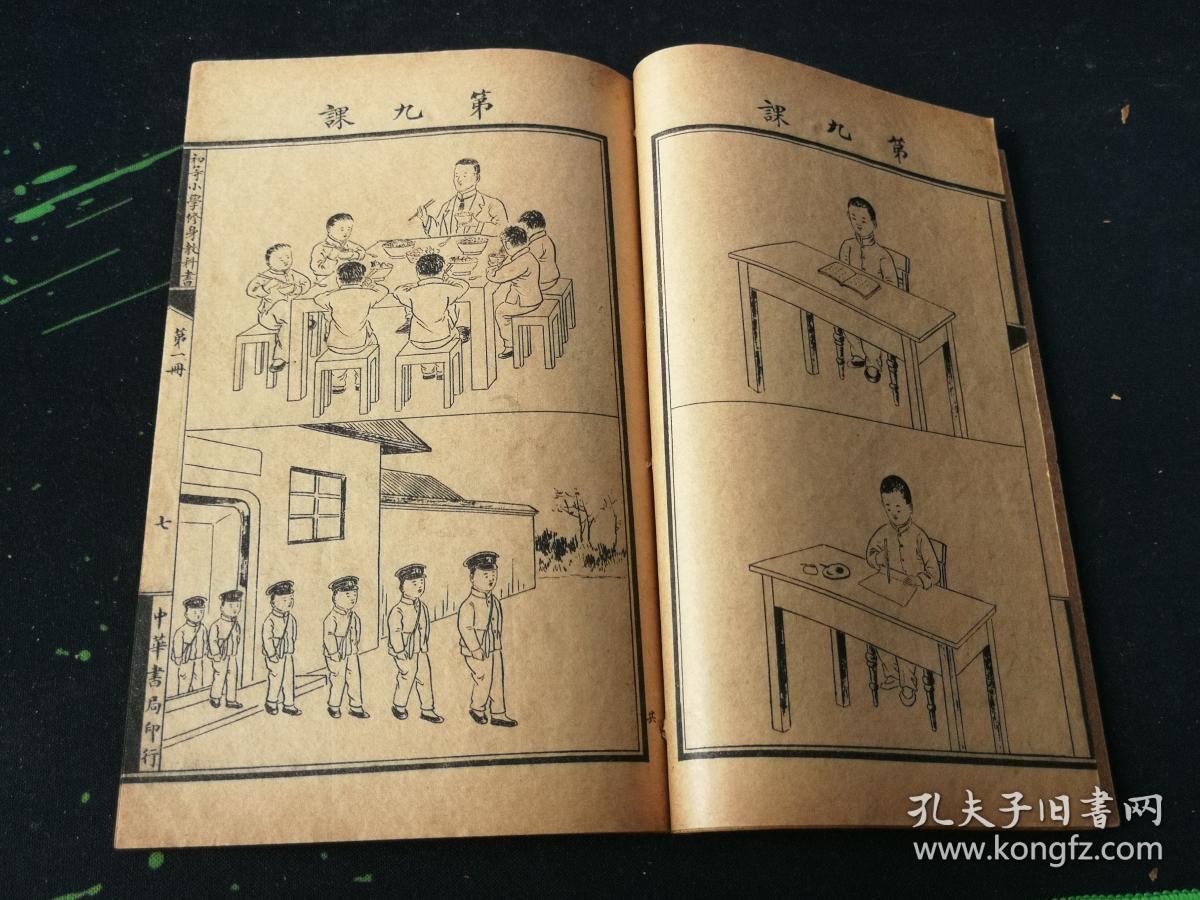 第九課
第九課
初等小學修身教科書
第一冊
七
中華書局印行
共
孔夫子旧书网
www.kongfz.com